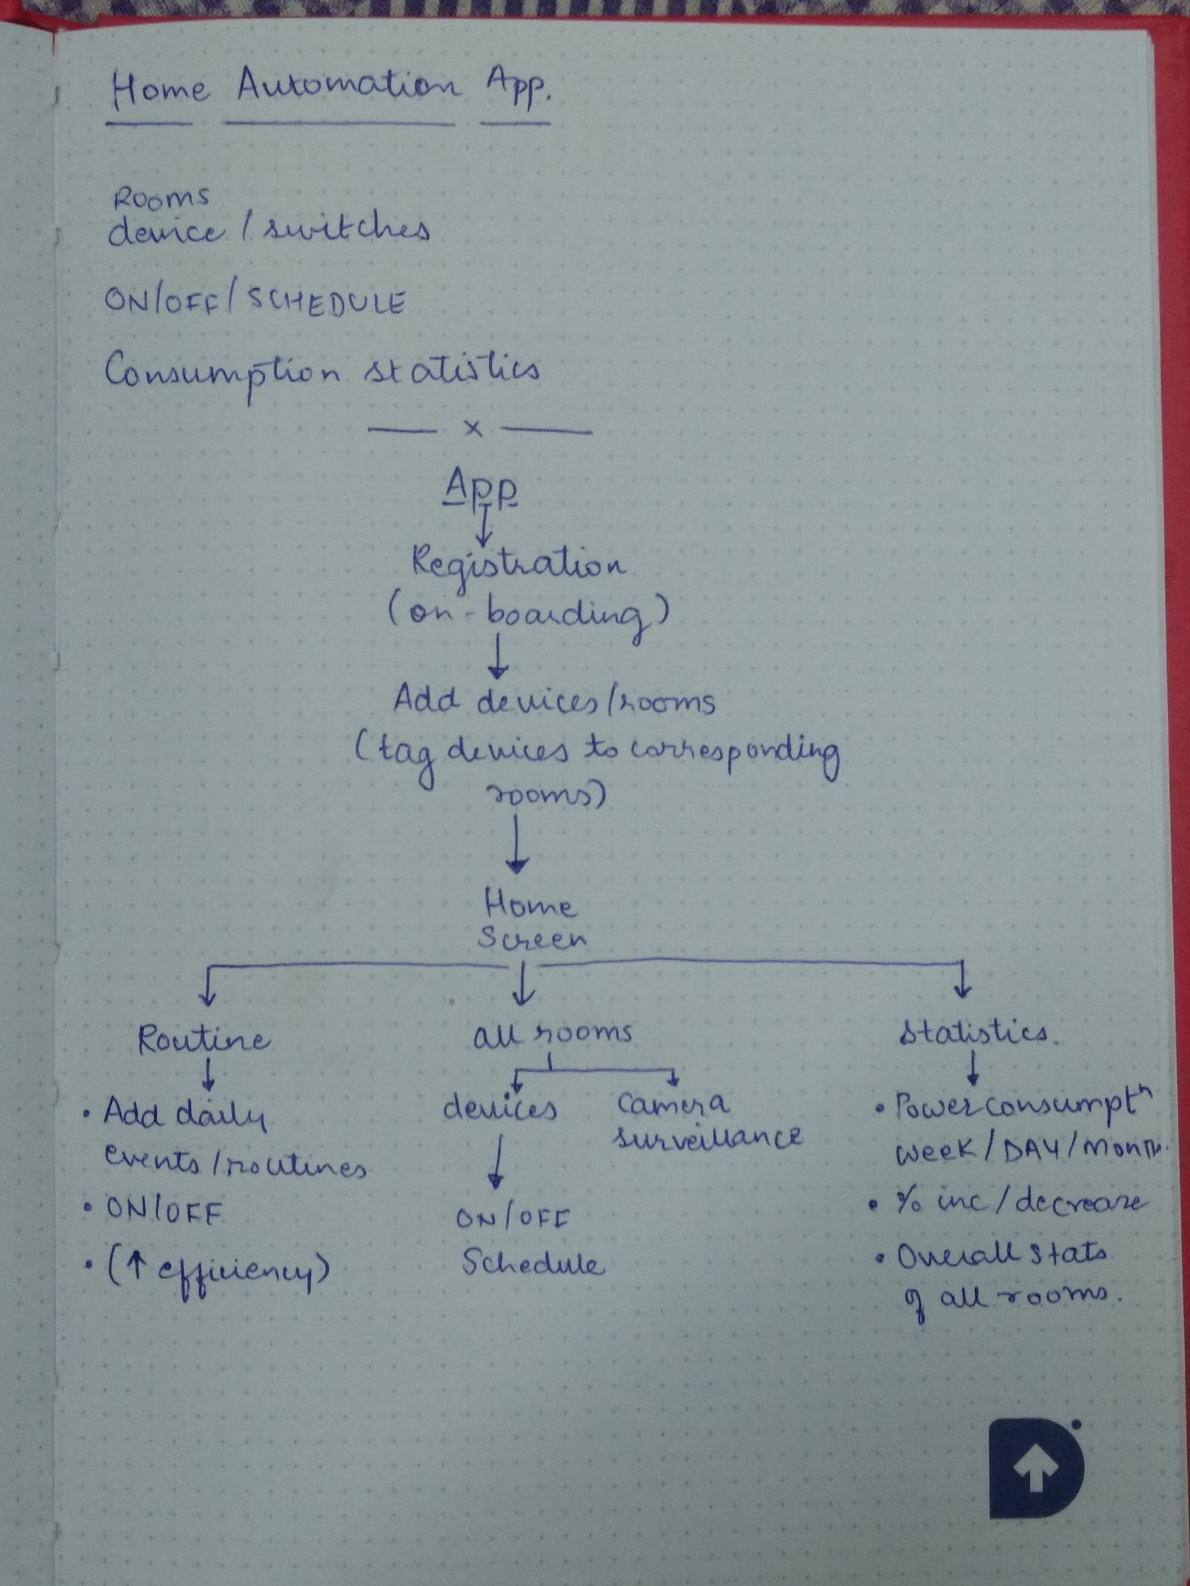 Home Automation App.
Rooms
device / switches
ON/OFF/SCHEDULE
Consumption statistics
x
App
Registration
(on-boarding)
Add devices/rooms
(tag devices to corresponding
rooms)
Home
Screen
Routine
all rooms
Statistics.
• Add daily
events/routines
• ON/OFF
• (↑ efficiency)
devices
camera
surveillance
ON/OFF
Schedule
• Power consumptⁿ
week/DAY/Month.
• % inc/decrease
• Overall stats
of all rooms.
D